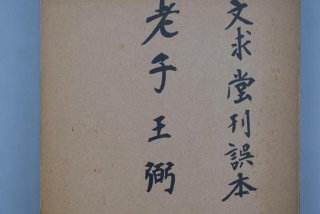 文求堂刊誤本
老子王弼